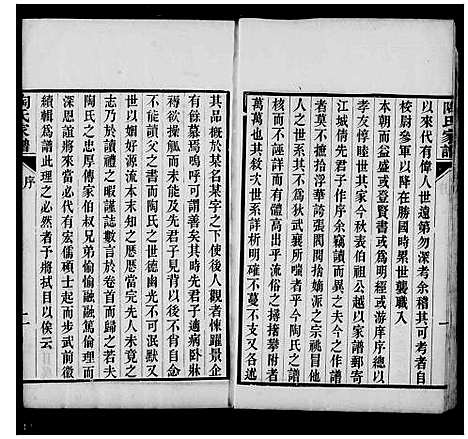 陶氏家譜
以來代有偉人世遠第勿深考余稽其可考自
校尉參軍以陣在勝國時累世襲職入
本朝而益盛或登賢書或為明經或游庠序率
孝友惇睦世其家今秋表伯祖公越以家譜郵寄
江城倩先君子作序余竊讀而三歎夫今之作譜
者莫不摭拾浮華誇張閥閱掐嫡派之宗祧冒前
人之世系其不為狄武襄所嗤者幾何今陶氏之譜
核而不誣詳而有體其高出乎流俗之譜
萬萬也其敘次世系詳析明確不蔓不支又
其品概於某名某字之下使後人觀者悚躍景企
有餘慕焉嗚呼可謂善矣其時先君子適病臥牀
蓐欲搦次而未能及先君子見背以後不才自傷
不能讀父之書而陶氏之世德幽光不可泯默又
世以姻好源流本末知之厯厯當完先人未竟之
志乃於讀禮之暇謹誌數言於卷首而歸之若夫
陶氏之忠厚傳家伯叔兄弟愉愉融融篤倫理而
深恩誼將來當必代有宏儒碩士起而步武前徽
續輯為譜此理之必然者予將拭目以俟云
陶氏家譜
序
二